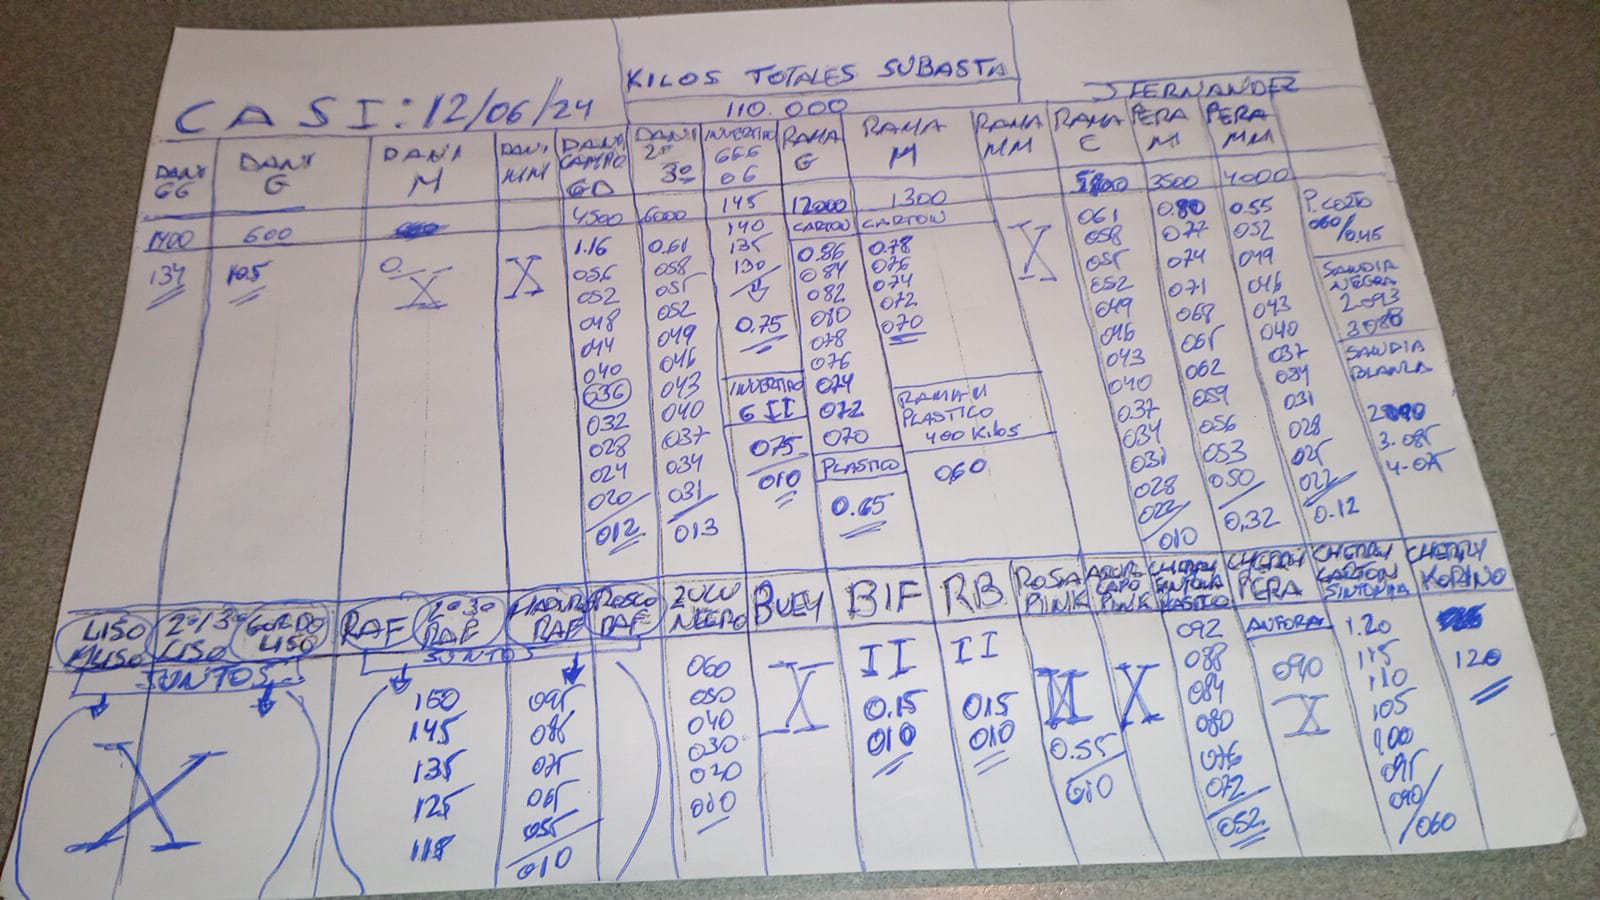 KILOS TOTALES SUBASTA
CASI: 12/06/24
110.000
J FERNANDEZ
DANI GG
1400
134
DANI G
600
105
DANI M
0.
X
DANI MM
X
DANI CAMPO GD
4500
1.16
056
052
048
044
040
036
032
028
024
020
012
DANI 2º 3º
6000
0.61
058
055
052
049
046
043
040
037
034
031
013
INVERTIDO
666
06
145
140
135
130
0.75
INVERTIDO
G II
075
010
RAMA G
12000
CARTON
0.86
084
082
080
078
076
074
072
070
PLASTICO
0.65
RAMA M
1300
CARTON
0.78
076
074
072
070
RAMA M
PLASTICO
400 Kilos
060
RAMA MM
X
RAMA C
061
058
055
052
049
046
043
040
037
034
031
028
022
010
PERA M
3500
0.80
077
074
071
068
065
062
059
056
053
050
0,32
PERA MM
4000
0.55
052
049
046
043
040
037
034
031
028
025
022
0.12
P. CORTO
060/0.45
SANDIA
NEGRA
2.093
3088
SANDIA
BLANCA
3.085
4-075
LISO
M LISO
2º/3º
LISO
GORDO
LISO
JUNTOS
X
RAF
2º 3º
RAF
MADURO
RAF
ROSCO
RAF
JUNTOS
160
145
135
125
118
095
085
075
065
055
010
ZULU
NEGRO
060
050
040
030
020
010
BUEY
X
BIF
II
0.15
010
RB
II
015
010
ROSA
PINK
0.55
010
ADORA
CAPO
PINK
X
CHERRY
SINTONIA
PLASTICO
092
088
084
080
076
072
052
CHERRY
PERA
ANFORA
090
X
CHERRY
CARTON
SINTONIA
1.20
115
110
105
100
095
090/060
CHERRY
KORINO
120